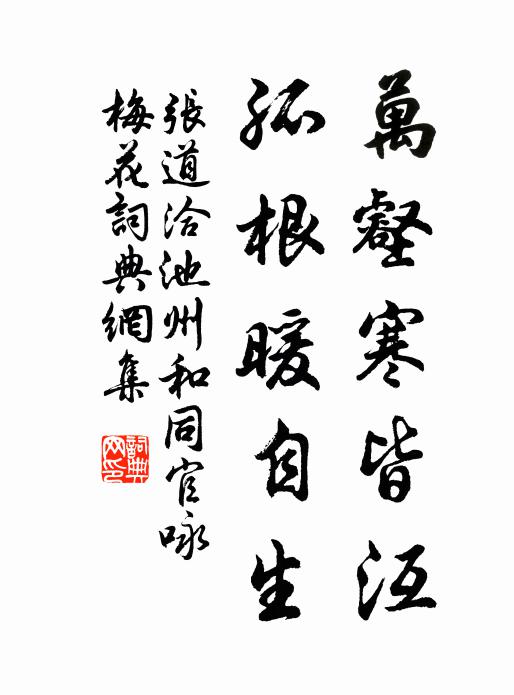 萬壑寒皆沍
孤根暖自生
張道洽池州和同官咏
梅花詞典網集
詞典
网印